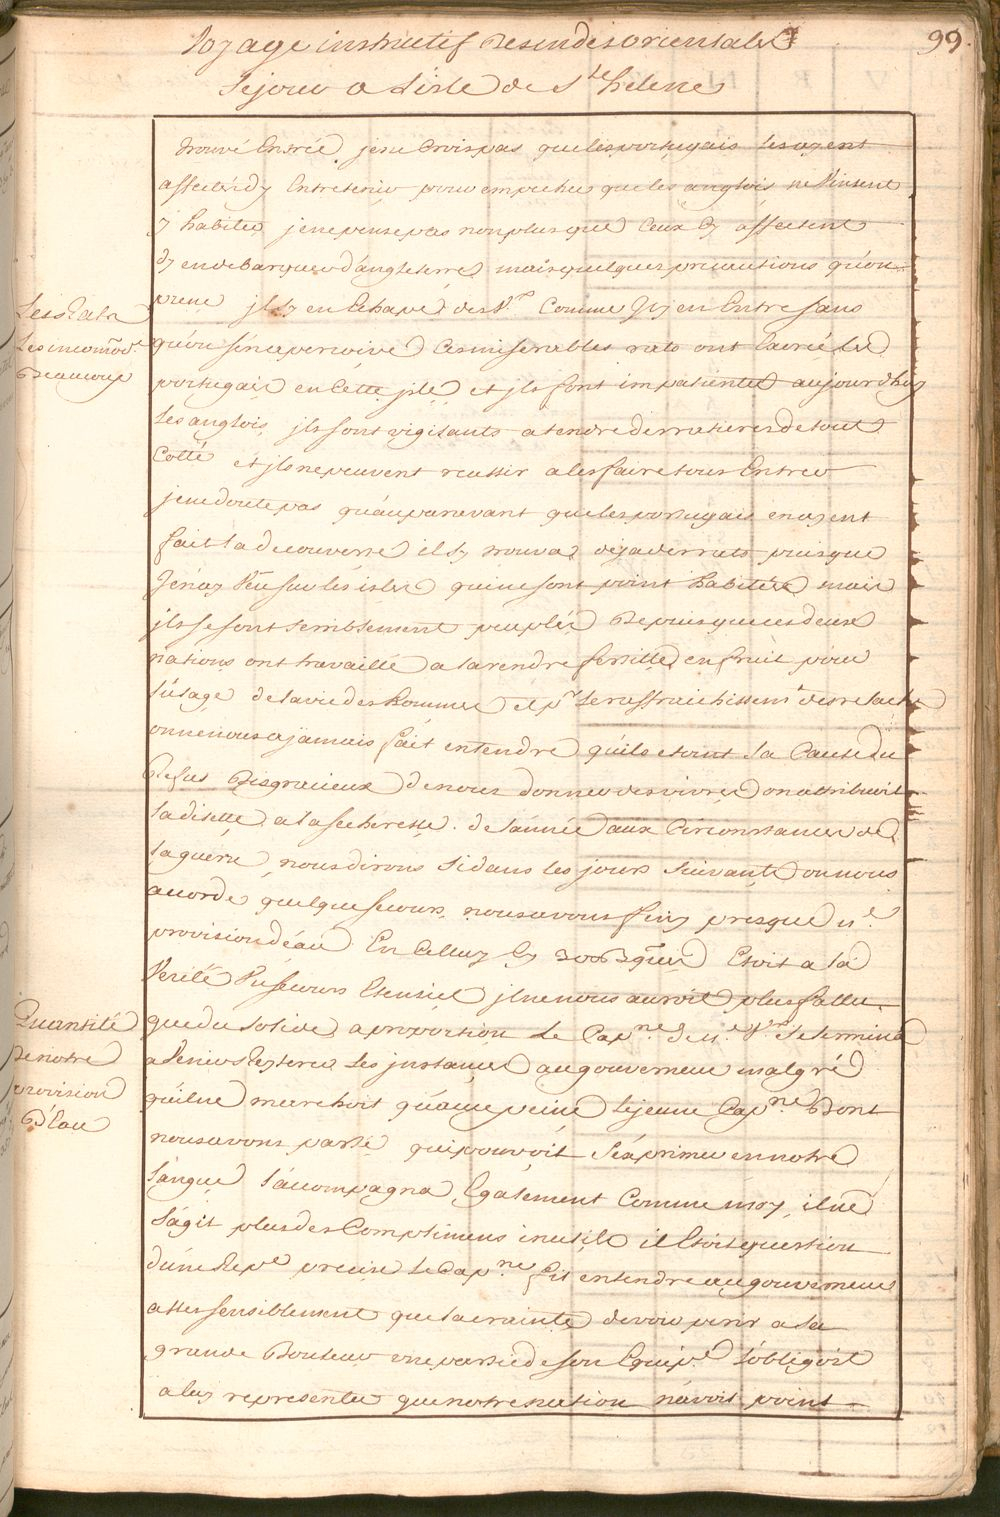 Voyage instructif Des indes orientales 99.
Sejour a Lisle de Ste helene
trouvé Entrée, jene Crois pas que les portugais les ayent
affecté dy Entretenir pour empecher que les anglois ne Vinsent
y habiter, jene pense pas non plus que Ceux Cy affectent
dy en debarquer d'angleterre, mais quelques precautions qu'on
prene jl sy en Echape des Vx Comme Jl y en Entre sans
qu'on s'en apercoive, Ces miserables rats ont Encrié les
portugais en Cette jsle et jls font impatienter aujourdhuy
les anglois, jls sont vigilants a tendre des ratieres de tout
Cotté et jls ne peuvent reussir a les faire tous Entrer
jene doute pas qu'auparavant que les portugais en ayent
fait la decouverte il sy trouva deja des rats puisque
J'en ay Vûe sur les isles qui ne sont point habitées mais
jls se sont semblement peuplés Depuis que ces deux
nations ont travaillé a la rendre fertille en fruit pour
l'usage de la vie des hommes et pr le raffraichissemt des relaches
on ne nous a jamais fait entendre qu'ils etoint la Cause du
Refus Disgracieux de nous donner des vivres on attribuoit
la disette a la secheresse de l'année aux Circonstances de
la guerre, nous dirons si dans les jours suivants on nous
accorde quelque secours, nous avons finy presque ne
provision d'eau En Celluy Cy 300 Bques Etoit a la
Verité Un secours Essensiel jl ne nous auroit plus fallu
que du Solide a proportion le Capne de ne Vx Determiné
a Venir Reiterer les jnstances au gouverneur malgré
qu'il ne marchoit qu'avec peine le jeune Capne Dont
nous avons parlé qui pouvoit s'exprimer en notre
langue l'accompagna Egalement Comme moy, il ne
s'agit plus des Complimens inutile il Etoit question
d'une Repe precise le Capne fit entendre au gouverneur
asses sensiblement que la crainte de voir perir a la
grande Douleur une partie de son Equipe l'obligeoit
a luy representer que notre nation n'avoit point
Les Rats
Les incomode
Beaucoup
Quantité
De notre
provision
D'Eau